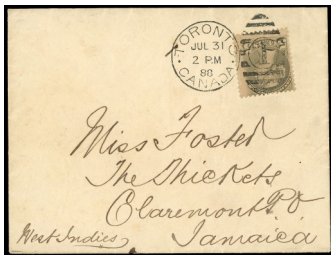 TORONTO
JUL 31
2 PM
88
CANADA
Miss Foster
The Thickets
Claremont P.O
Jamaica
West Indies